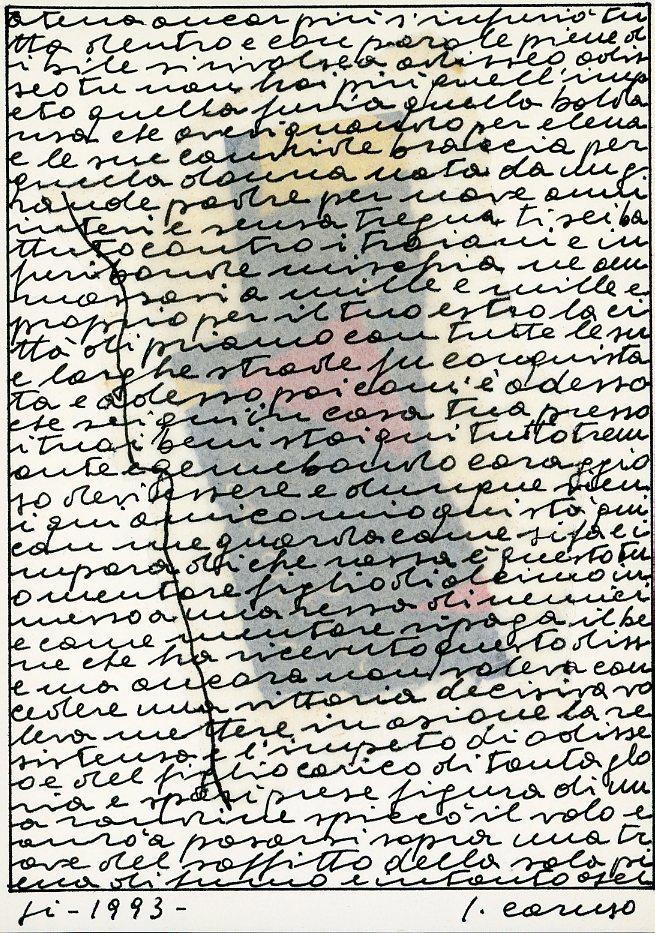 atena ancor più s'infuriò tu
tta dentro e con parole piene d
i bile si rivolse a odisseo odis
seo tu non hai più quell'imp
eto quella furia quella balda
nza che avevi quando per elena
e le sue candide braccia per
quella donna nata da un g
rande padre per nove anni
interi e senza tregua ti sei ba
ttuto contro i troiani e in
furibonde mischie ne am
mazzasti a mille e mille e
proprio per il tuo estro la ci
ttà di priamo con tutte le su
e larghe strade fu conquista
ta e adesso poi com'è adesso
che sei qui in casa tua presso
i tuoi beni stai qui tutto trem
ante e gemebondo coraggio
so devi essere e dunque vien
i qui amico mio qui sta qui
con me guarda come si fa e i
mpara di che razza è questo tu
o mentore figlio di alcimo in
mezzo a una ressa di nemici
e come mentore ripaga il be
ne che ha ricevuto questo diss
e ma ancora non voleva con
cedere una vittoria decisiva vo
leva mettere in azione la re
sistenza e l'impeto di odisse
o e del figlio carico di tanta glo
ria e spari prese figura di un
a rondine spiccò il volo e
andò a posarsi sopra una tr
ave del soffitto della sala pi
ena di fumo e intanto agel
fi - 1993 -
l. caruso